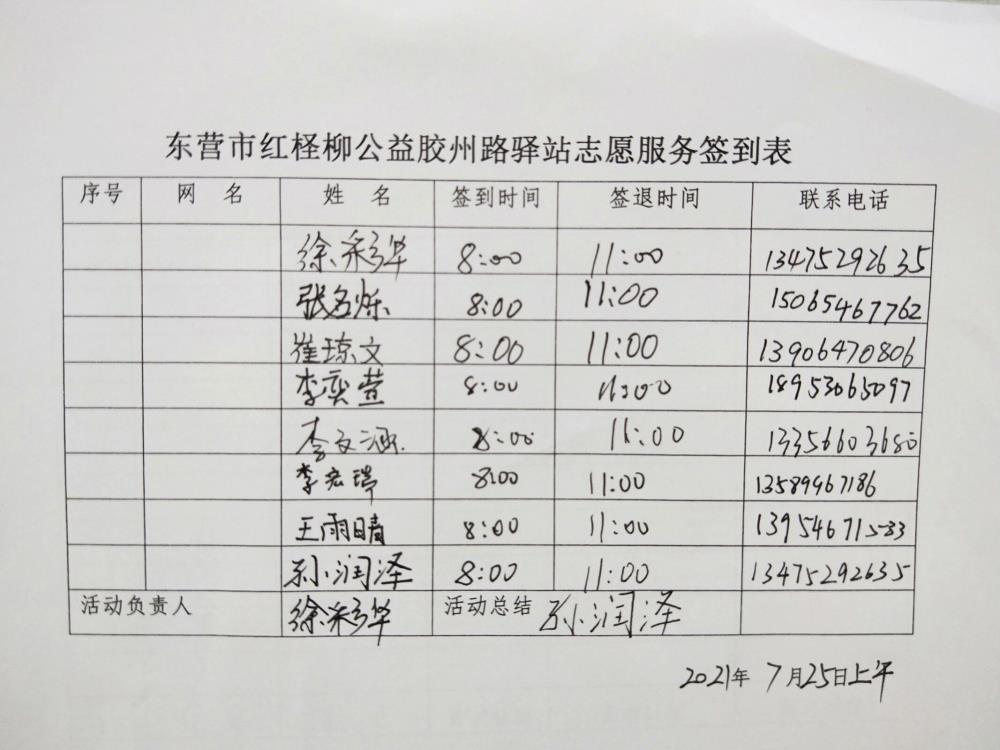 东营市红柽柳公益胶州路驿站志愿服务签到表
序号 网 名 姓 名 签到时间 签退时间 联系电话
徐彩华 8:00 11:00 13475292635
张名烁 8:00 11:00 15065467762
崔琼文 8:00 11:00 13906470806
李奕萱 8:00 11:00 18953065097
李文涵 8:00 11:00 13356603680
李宏瑞 8:00 11:00 13589967186
王雨晴 8:00 11:00 13954671533
孙润泽 8:00 11:00 13475292635
活动负责人 徐彩华 活动总结 孙润泽
2021年 7月25日上午